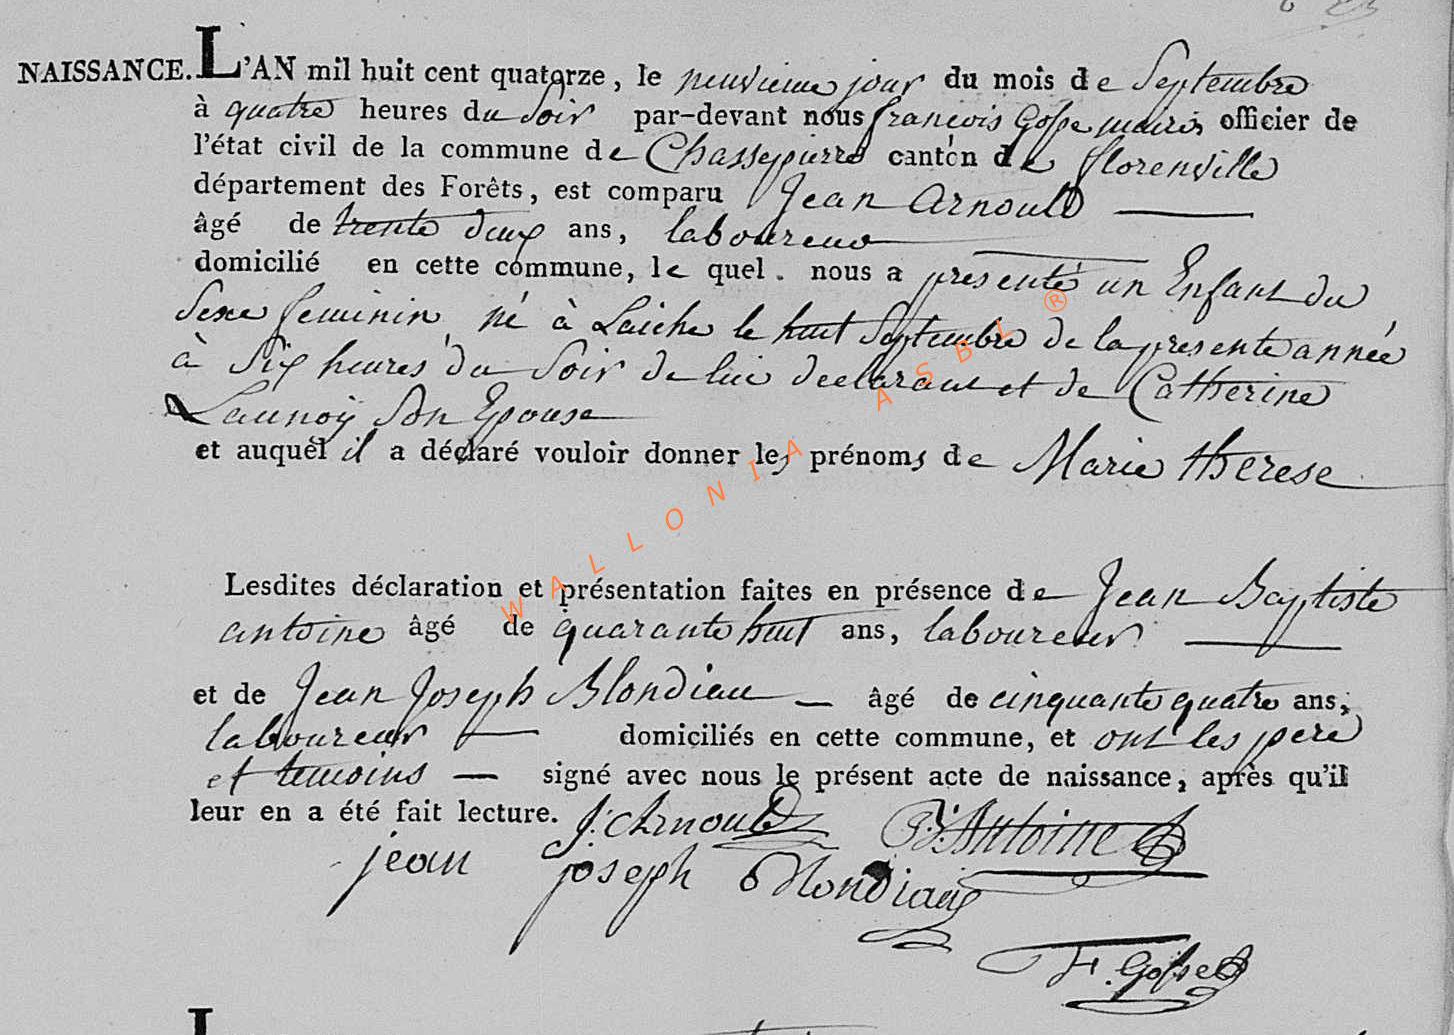 NAISSANCE. L'AN mil huit cent quatorze, le neuvieme jour du mois de Septembre
à quatre heures du Soir par-devant nous françois Gosse mairis officier de
l'état civil de la commune de Chassepierre canton de florenville
département des Forêts, est comparu Jean Arnould
âgé de trente deux ans, laboureur
domicilié en cette commune, le quel. nous a presenté un Enfant du
Sexe feminin, né à Laiche le huit Septembre de la presente année
à Six heures du Soir de lui declarant et de Catherine
Launoÿ Son Epouse
et auquel il a déclaré vouloir donner les prénoms de Marie therese
Lesdites déclaration et présentation faites en présence de Jean Baptiste
antoine âgé de quarante huit ans, laboureur
et de Jean Joseph Blondiau âgé de cinquante quatre ans,
laboureur domiciliés en cette commune, et ont les pere
et temoins signé avec nous le présent acte de naissance, après qu'il
leur en a été fait lecture. J: Arnould Antoine
jean joseph blondiaux
F. Gosse
L
WALLONIA ASBL ®